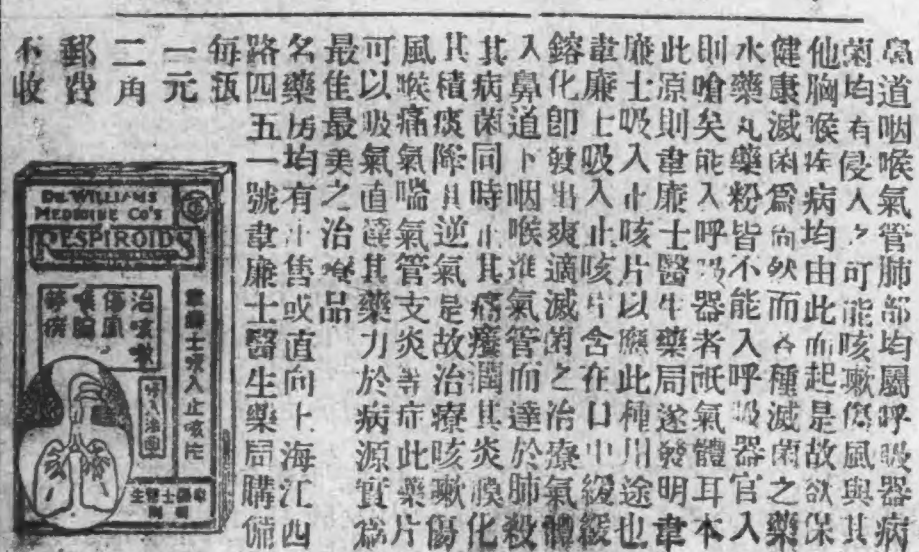 鼻道咽喉氣管肺部均屬呼吸器病
菌均有侵入之可能咳嗽傷風與其
他胸喉疾病均由此而起是故欲保
健康滅菌爲尙然而各種滅菌之藥
水藥丸藥粉皆不能入呼吸器官入
則嗆矣能入呼吸器者祇氣體耳本
此原則韋廉士醫生藥局遂發明韋
廉士吸入止咳片以應此種用途也
韋廉士吸入止咳片含在口中緩緩
鎔化卽發出爽適滅菌之治療氣體
入鼻道下咽喉進氣管而達於肺殺
其病菌同時止其痛癢潤其炎膜化
其積痰降其逆氣是故治療咳嗽傷
風喉痛氣喘氣管支炎等症此藥片
可以吸氣直達其藥力於病源實爲
最佳最美之治療品
名藥房均有出售或直向上海江西
路四五一號韋廉士醫生藥局購備
每瓶
一元
二角
郵費
不收
DR. WILLIAMS
MEDICINE CO'S
RESPIROIDS
韋廉士吸入止咳片
治咳嗽
傷風
喉胸
等病
吸入治菌